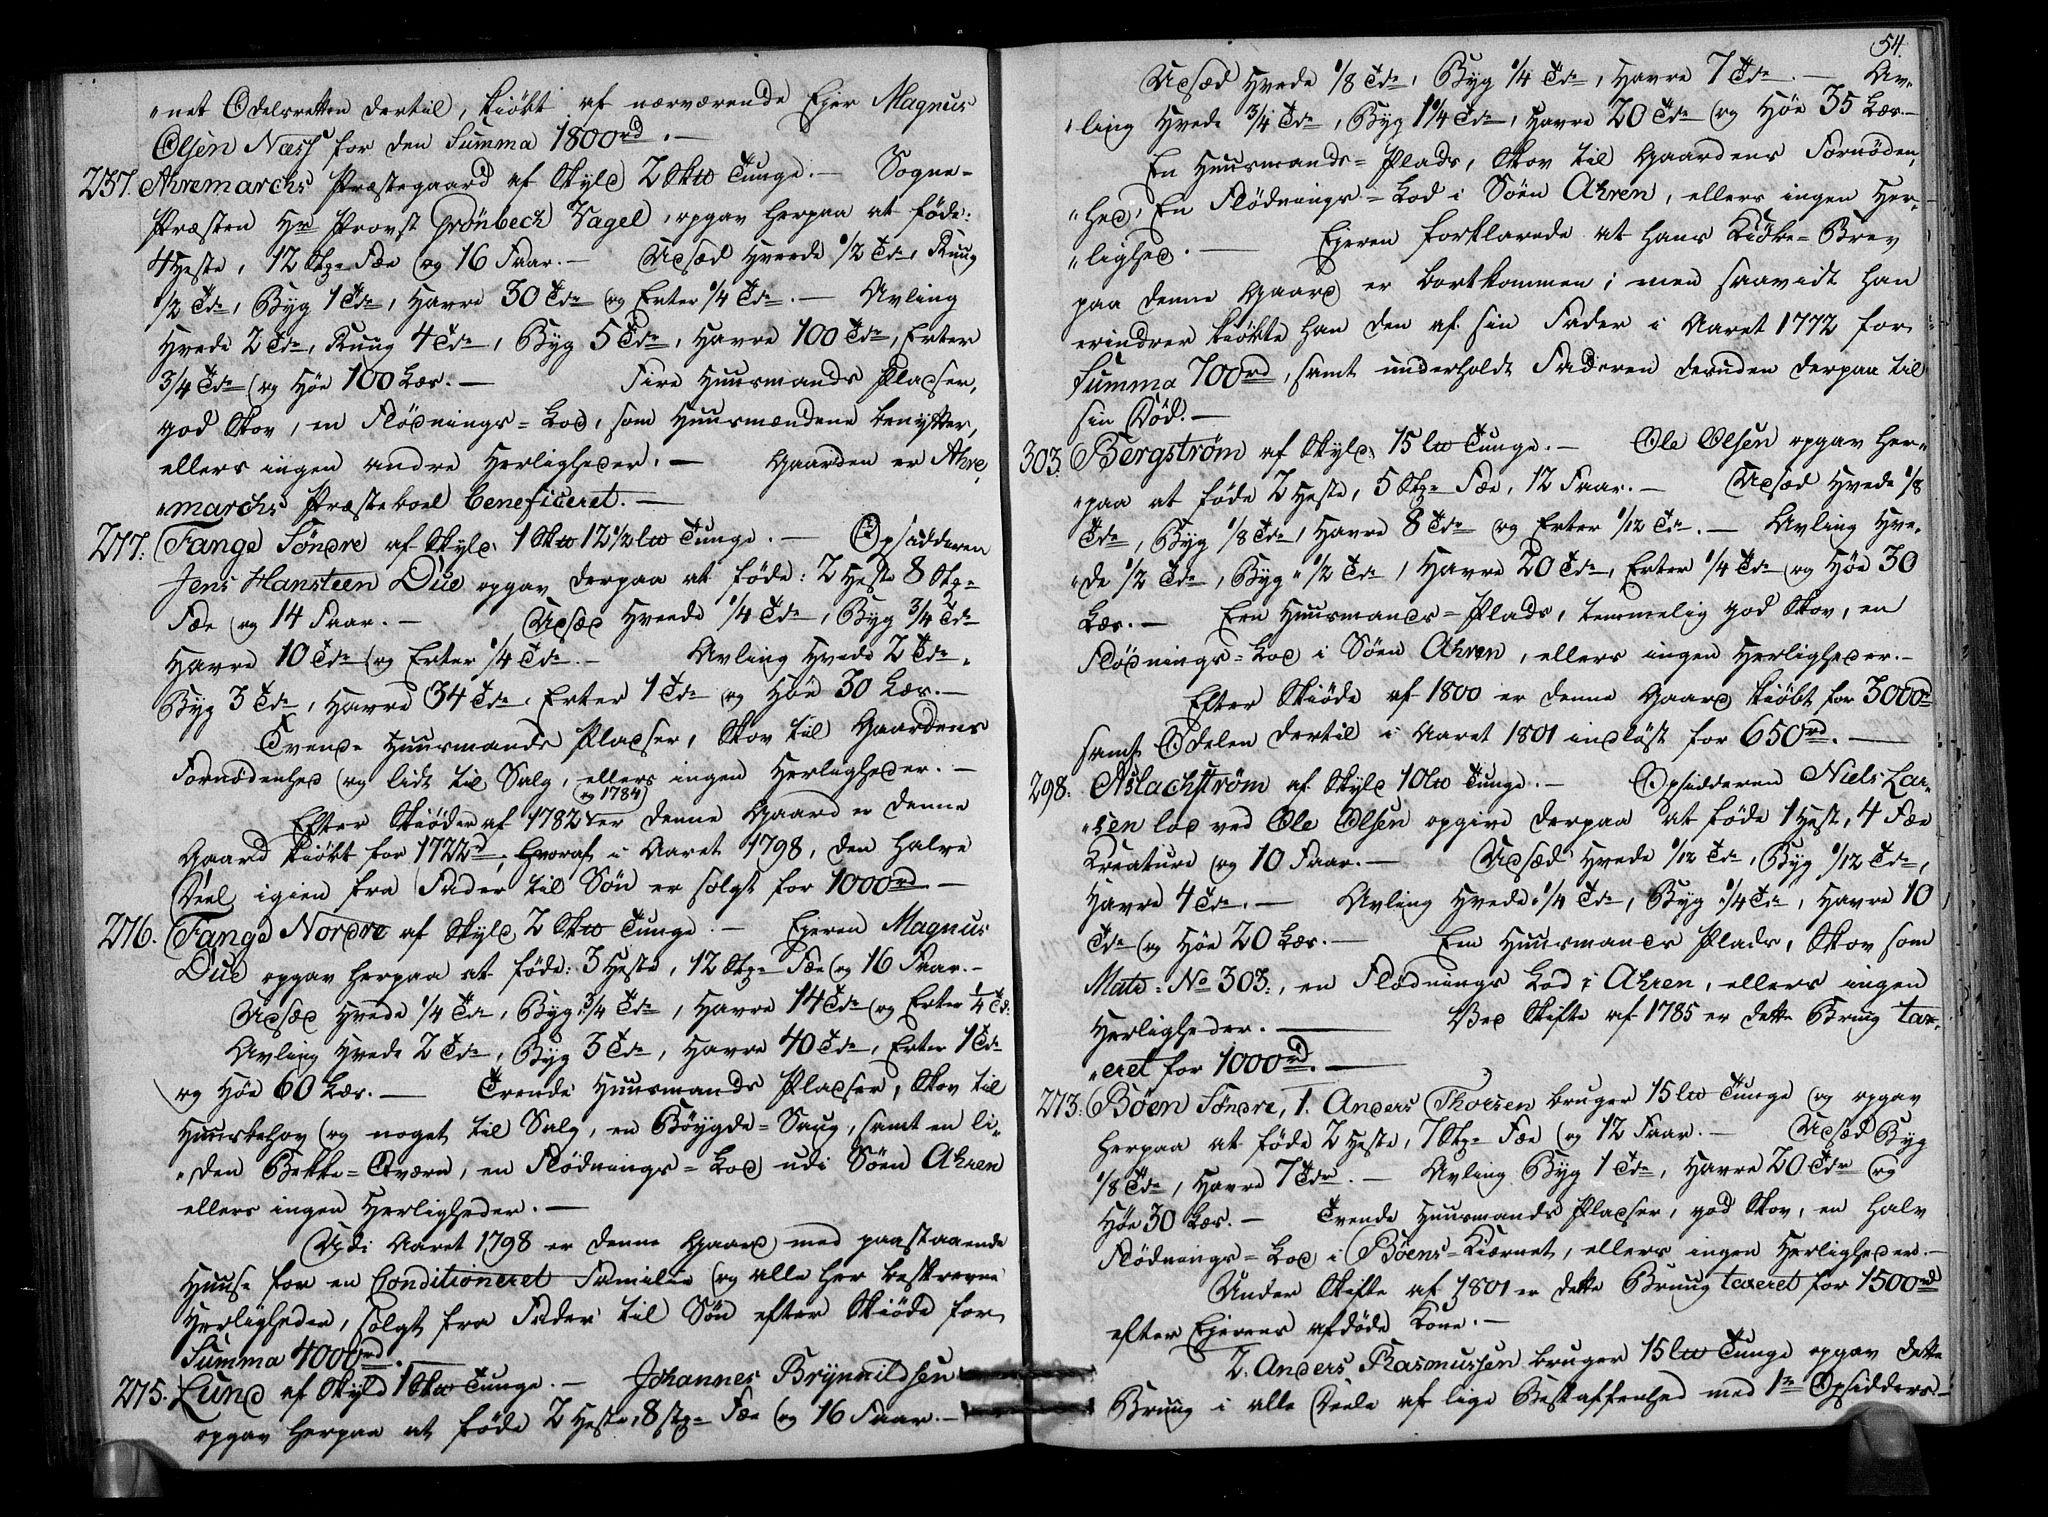 „net Odelsretten dertil, kiöbt af nærværende Ejer Magnus
Olsen Næss for den Summa 1800rd. —
257. Ahremarchs Præstegaard af Skyld 2 Skw Tunge. — Sogne-
Præsten Hr Provst Grönbech Vagel, opgav herpaa at föde:
4 Heste, 12 Stkr Fæe og 16 Faar. — Udsæd Hvede 1/2 Tde, Ruug
1/2 Tde, Byg 1 Tde, Havre 30 Tdr og Erter 1/4 Tde. — Avling
Hvede 2 Tdr, Ruug 4 Tdr, Byg 5 Tdr, Havre 100 Tdr, Erter
3/4 Tde og Höe 100 Læs. — Fire Huusmands Pladser,
god Skov, en Flödnings-Lod, som Huusmændene benytter,
ellers ingen andre Herligheder. — Gaarden er Ahre
„marchs Præsteboel beneficeret. —
277. Fange Söndre af Skyld 1 Skw 12 1/2 lw Tunge. — Opsidderen
Jens Hansteen Due opgav derpaa at föde: 2 Heste 8 Stkr
Fæe og 14 Faar. — Udsæd Hvede 1/4 Tde, Byg 3/4 Tde
Havre 10 Tdr og Erter 1/4 Tde. — Avling Hvede 2 Tdr,
Byg 3 Tdr, Havre 34 Tdr, Erter 1 Tde og Höe 30 Læs. —
Tvende Huusmands Pladser, Skov til Gaardens
Fornödenhed og lidt til Salg, ellers ingen Herligheder. —
og 1784
Efter Skiöder af 1782 er denne Gaard er denne
Gaard kiöbt for 1722rd, hvoraf i Aaret 1798, den halve
Deel igien fra Fader til Sön er solgt for 1000rd —
276. Fange Nordre af Skyld 2 Skw Tunge. — Ejeren Magnus
Due opgav herpaa at föde: 3 Heste, 12 Stkr Fæe og 16 Faar. —
Udsæd Hvede 1/4 Tde, Byg 3/4 Tde, Havre 14 Tdr og Erter 1/4 Td:
Avling Hvede 2 Tdr, Byg 3 Tdr, Havre 40 Tdr, Erter 1 Tde
og Höe 60 Læs. — Trende Huusmands Pladser, Skov til
Huusbehov og noget til Salg, en Böygde-Saug, samt en li-
„den Bekke-Qværn, en Flödnings-Lod udi Söen Ahren
ellers ingen Herligheder. —
Udi Aaret 1798 er denne Gaard med paastaaende
Huuse for en Conditioneret Familie og alle her beskrevne
Herligheder, solgt fra Fader til Sön efter Skiöde for
Summa 4000rd.
275. Lund af Skyld 1 Skw Tunge. — Johannes Brynnildsen
opgav herpaa at föde 2 Heste, 8 stkr Fæe og 16 Faar. —
54.
Udsæd Hvede 1/8 Tde, Byg 1/4 Tde, Havre 7 Tdr. — Av-
„ling Hvede 3/4 Tde, Byg 1 1/4 Tde, Havre 20 Tdr og Höe 35 Læs —
En Huusmands-Plads, Skov til Gaardens Fornöden,
„hed, En Flödnings-Lod i Söen Ahren, ellers ingen Her-
„lighed. — Ejeren forklarede at hans Kiöbe-Brev
paa denne Gaard er bortkommen; men saavidt han
erindrer kiöbte han den af sin Fader i Aaret 1772 for
Summa 700rd, samt underholdt Faderen desuden derpaa til
sin Död. —
303. Bergström af Skyld 15 lw Tunge. — Ole Olsen opgav her-
„paa at föde 2 Heste, 5 Stkr Fæe, 12 Faar. — Udsæd Hvede 1/8
Tde, Byg 1/8 Tde, Havre 8 Tdr og Erter 1/12 Tde. — Avling Hve-
„de 1/2 Tde, Byg 1/2 Tde, Havre 20 Tdr, Erter 1/4 Tde og Höe 30
Læs. — Een Huusmands-Plads, temmelig god Skov, en
Flödnings-Lod i Söen Ahren, ellers ingen Herligheder. —
Efter Skiöde af 1800 er denne Gaard kiöbt for 3000rd
samt Odelen dertil i Aaret 1801 indlöst for 650rd. —
298. Aslachström af Skyld 10 lw Tunge. — Opsidderen Niels Lar-
„sen lod ved Ole Olsen opgive derpaa at föde 1 Hest, 4 Fæe
Kreature og 10 Faar. — Udsæd Hvede 1/12 Tde, Byg 1/12 Tde,
Havre 4 Tdr. — Avling Hvede 1/4 Tde, Byg 1/4 Tde, Havre 10
Tdr og Höe 20 Læs. — Een Huusmands Plads, Skov som
Matr: No 303:, en Flödnings Lod i Ahren, ellers ingen
Herligheder. — Ved Skifte af 1785 er dette Brug tax-
„eret for 1000rd. —
273. Böen Söndre, 1. Anders Thorsen bruger 15 lw Tunge og opgav
herpaa at föde 2 Heste, 7 Stkr Fæe og 12 Faar. — Udsæd Byg
1/8 Tde, Havre 7 Tdr. — Avling Byg 1 Tde, Havre 20 Tdr og
Höe 30 Læs. — Tvende Huusmands Pladser, god Skov, en halv
Flödnings-Lod i Böens-Kiærnet, ellers ingen Herligheder. —
Under Skifte af 1801 er dette Bruug taxeret for 1500rd
efter Ejerens afdöde Kone. —
2. Anders Rasmussen bruger 15 lw Tunge opgav dette
Bruug i alle Deele af lige Beskaffenhed med 1te Opsidders —